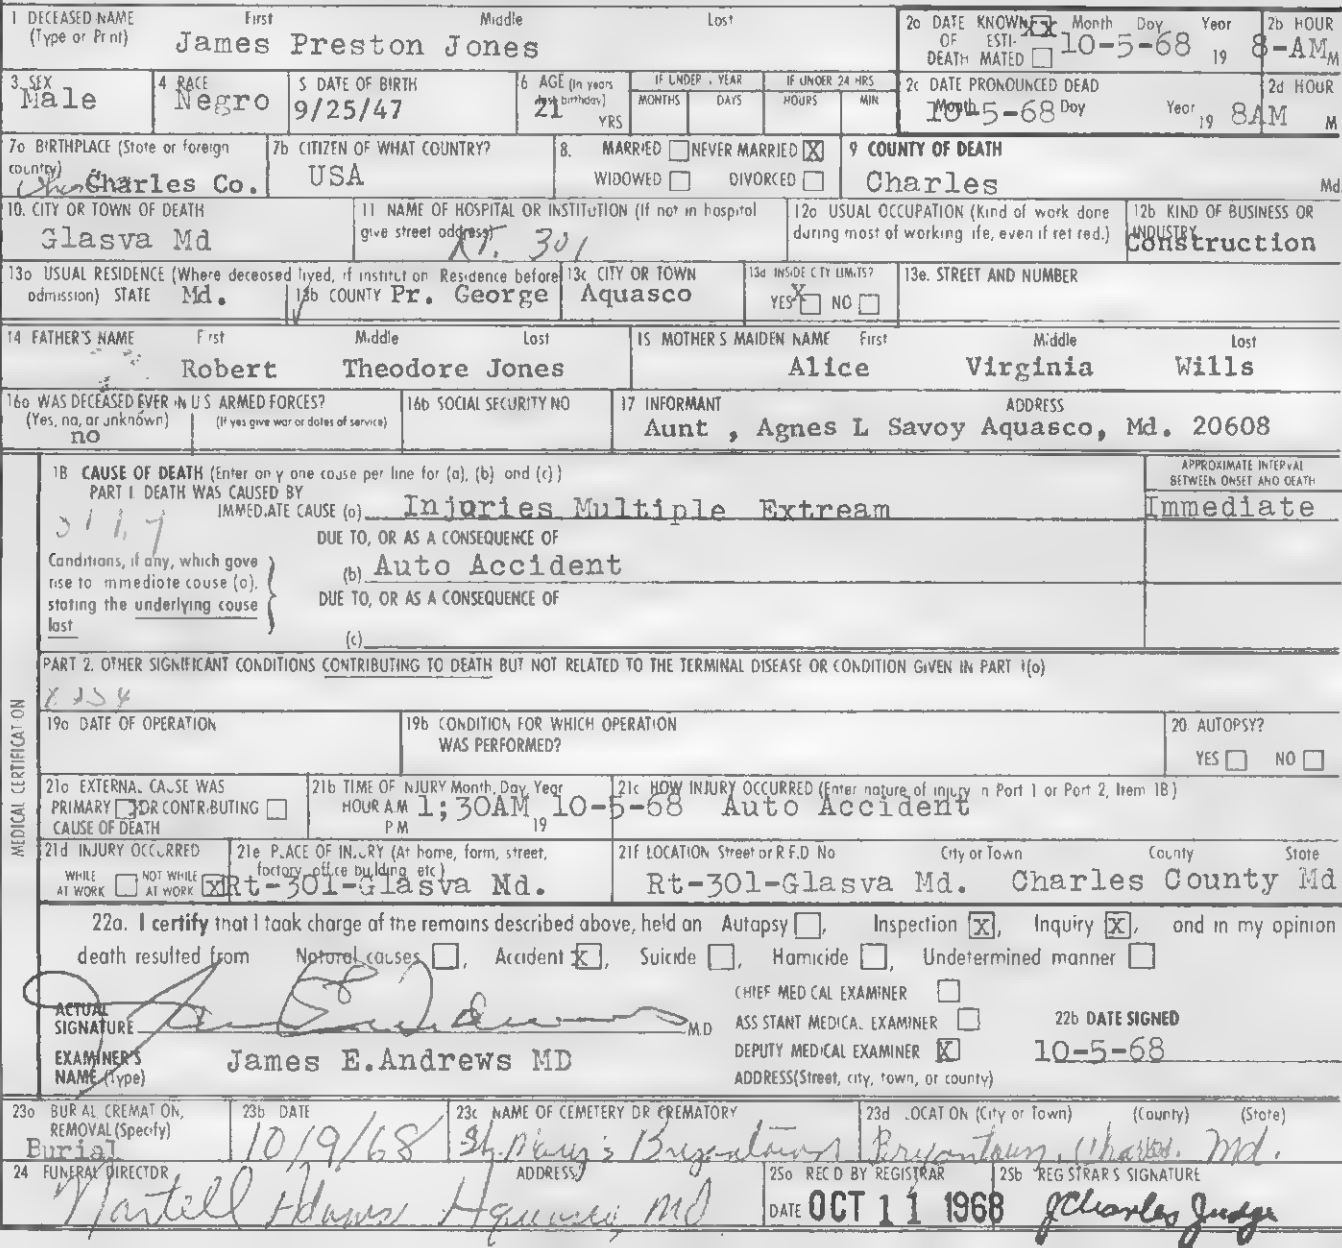 1 DECEASED-NAME (Type or Print) First Middle Last
James Preston Jones
2a DATE KNOWN XX OF ESTI- DEATH MATED Month Day Year 10-5-68 19
2b HOUR 8-AM M
3. SEX Male
4 RACE Negro
5 DATE OF BIRTH 9/25/47
6 AGE (In years last birthday) 21 YRS
IF UNDER 1 YEAR MONTHS DAYS
IF UNDER 24 HRS HOURS MIN
2c DATE PRONOUNCED DEAD Month Day Year 10-5-68 19
2d HOUR 8AM M
7a BIRTHPLACE (State or foreign country) Charles Co.
7b CITIZEN OF WHAT COUNTRY? USA
8. MARRIED NEVER MARRIED X
WIDOWED DIVORCED
9 COUNTY OF DEATH Charles Md
10. CITY OR TOWN OF DEATH Glasva Md
11 NAME OF HOSPITAL OR INSTITUTION (If not in hospital give street address) RT. 301
12a USUAL OCCUPATION (Kind of work done during most of working life, even if retired.)
12b KIND OF BUSINESS OR INDUSTRY Construction
13a USUAL RESIDENCE (Where deceased lived, if institution Residence before admission) STATE Md.
13b COUNTY Pr. George
13c CITY OR TOWN Aquasco
13d INSIDE CITY LIMITS? YES X NO
13e. STREET AND NUMBER
14 FATHER'S NAME First Middle Last
Robert Theodore Jones
15 MOTHER'S MAIDEN NAME First Middle Last
Alice Virginia Wills
16a WAS DECEASED EVER IN U S ARMED FORCES? (Yes, no, or unknown) no (If yes give war or dates of service)
16b SOCIAL SECURITY NO
17 INFORMANT ADDRESS
Aunt , Agnes L Savoy Aquasco, Md. 20608
18 CAUSE OF DEATH (Enter only one cause per line for (a), (b) and (c))
PART I. DEATH WAS CAUSED BY
IMMEDIATE CAUSE (a) Injuries Multiple Extream
APPROXIMATE INTERVAL BETWEEN ONSET AND DEATH
Immediate
DUE TO, OR AS A CONSEQUENCE OF
Conditions, if any, which gave rise to immediate cause (a), stating the underlying cause last
(b) Auto Accident
DUE TO, OR AS A CONSEQUENCE OF
(c)
PART 2. OTHER SIGNIFICANT CONDITIONS CONTRIBUTING TO DEATH BUT NOT RELATED TO THE TERMINAL DISEASE OR CONDITION GIVEN IN PART 1(a)
MEDICAL CERTIFICATION
19a DATE OF OPERATION
19b CONDITION FOR WHICH OPERATION WAS PERFORMED?
20 AUTOPSY? YES NO
21a EXTERNAL CAUSE WAS PRIMARY OR CONTRIBUTING CAUSE OF DEATH
21b TIME OF INJURY Month, Day, Year HOUR A.M P M 1;30AM 10-5-68 19
21c HOW INJURY OCCURRED (Enter nature of injury in Part 1 or Part 2, Item 18)
Auto Accident
21d INJURY OCCURRED WHILE AT WORK NOT WHILE AT WORK X
21e PLACE OF INJURY (At home, farm, street, factory, office building etc) Rt-301-Glasva Nd.
21f LOCATION Street or R F.D No City or Town County State
Rt-301-Glasva Md. Charles County Md
22a. I certify that I took charge of the remains described above, held an Autopsy , Inspection X, Inquiry X, and in my opinion
death resulted from Natural causes , Accident X, Suicide , Homicide , Undetermined manner
ACTUAL SIGNATURE M.D
CHIEF MEDICAL EXAMINER
ASSISTANT MEDICAL EXAMINER
DEPUTY MEDICAL EXAMINER X
22b DATE SIGNED 10-5-68
EXAMINER'S NAME (Type) James E.Andrews MD
ADDRESS(Street, city, town, or county)
23a BURIAL CREMATION, REMOVAL (Specify) Burial
23b DATE 10/9/68
23c NAME OF CEMETERY OR CREMATORY St. Mary's Bryantown
23d LOCATION (City or Town) (County) (State) Bryantown, Charles. Md.
24 FUNERAL DIRECTOR ADDRESS
Martell Adams Aquasco, Md
25a REC'D BY REGISTRAR DATE OCT 11 1968
25b REGISTRAR'S SIGNATURE
J Charles Judge